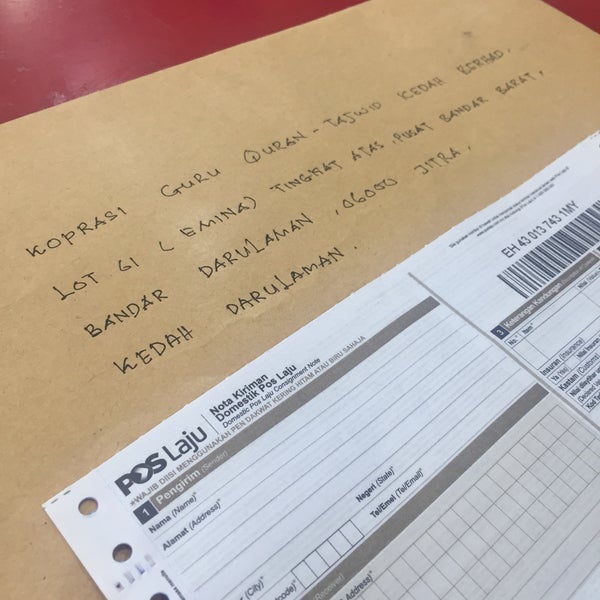 KOPRASI GURU QURAN - TAJWID KEDAH BERHAD,
LOT 61 (EMINA) TINGKAT ATAS, PUSAT BANDAR BARAT,
BANDAR DARULAMAN, 06000 JITRA,
KEDAH DARULAMAN.
EH 43 013 743 1MY
POS Laju
Nota Kiriman
Domestik Pos Laju
Domestic Pos Laju Consignment Note
*WAJIB DIISI MENGGUNAKAN PEN DAKWAT KERING HITAM ATAU BIRU SAHAJA
1 Pengirim (Sender)
Nama (Name)*
Alamat (Address)*
Negeri (State)*
Tel/Emel (Tel/Email)*
3 Keterangan Kandungan
No. Item
Insuran (Insurance)
Ya (Yes)
Kastam (Customs)